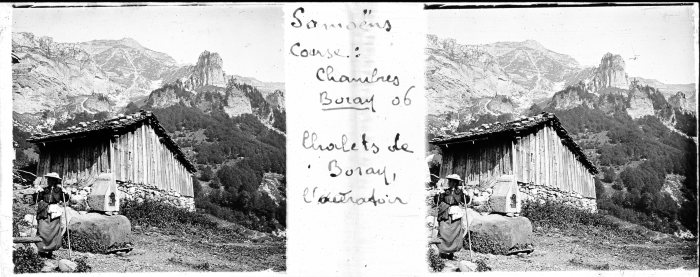 Samoëns
Course:
Chambres
Boray 06
Chalets de
Boray,
l'oératoir